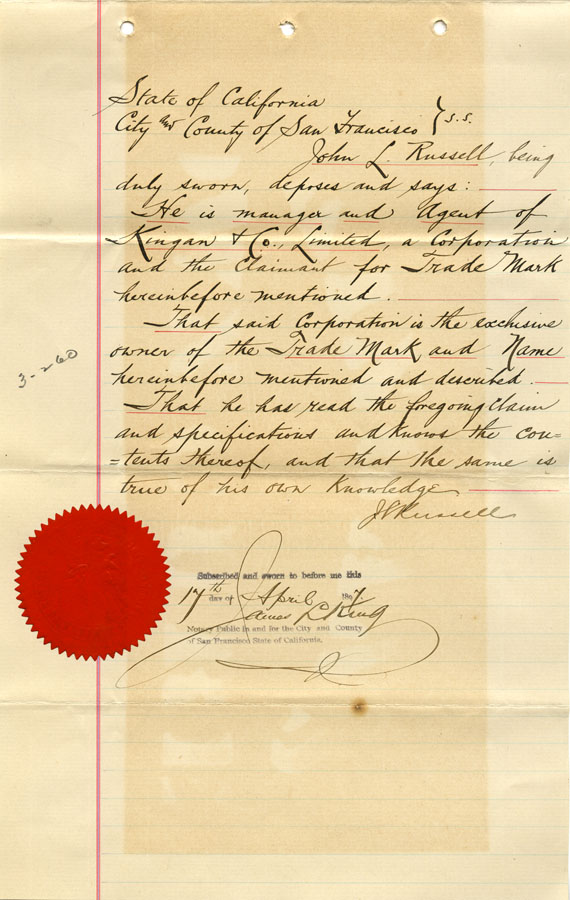 State of California
City and County of San Francisco } s.s.
John L. Russell, being
duly sworn, deposes and says:
He is manager and Agent of
Kingan & Co., Limited, a Corporation
and the Claimant for Trade Mark
hereinbefore mentioned.
That said Corporation is the exclusive
owner of the Trade Mark and Name
hereinbefore mentioned and described.
That he has read the foregoing Claim
and specifications and knows the con-
-tents thereof, and that the same is
true of his own Knowledge
J L Russell
3-260
Subscribed and sworn to before me this
17th day of April 1897.
James L King
Notary Public in and for the City and County
of San Francisco State of California.